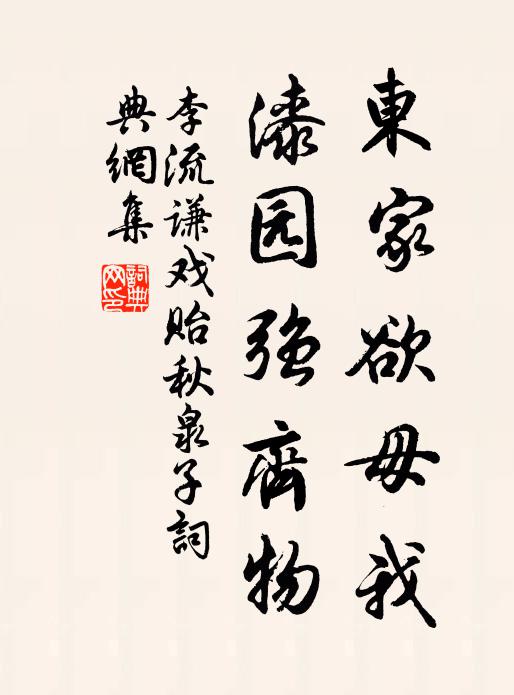 東家欲毋我
漆园強齊物
李流谦戏贻秋泉子詞
典網集
詞典网印